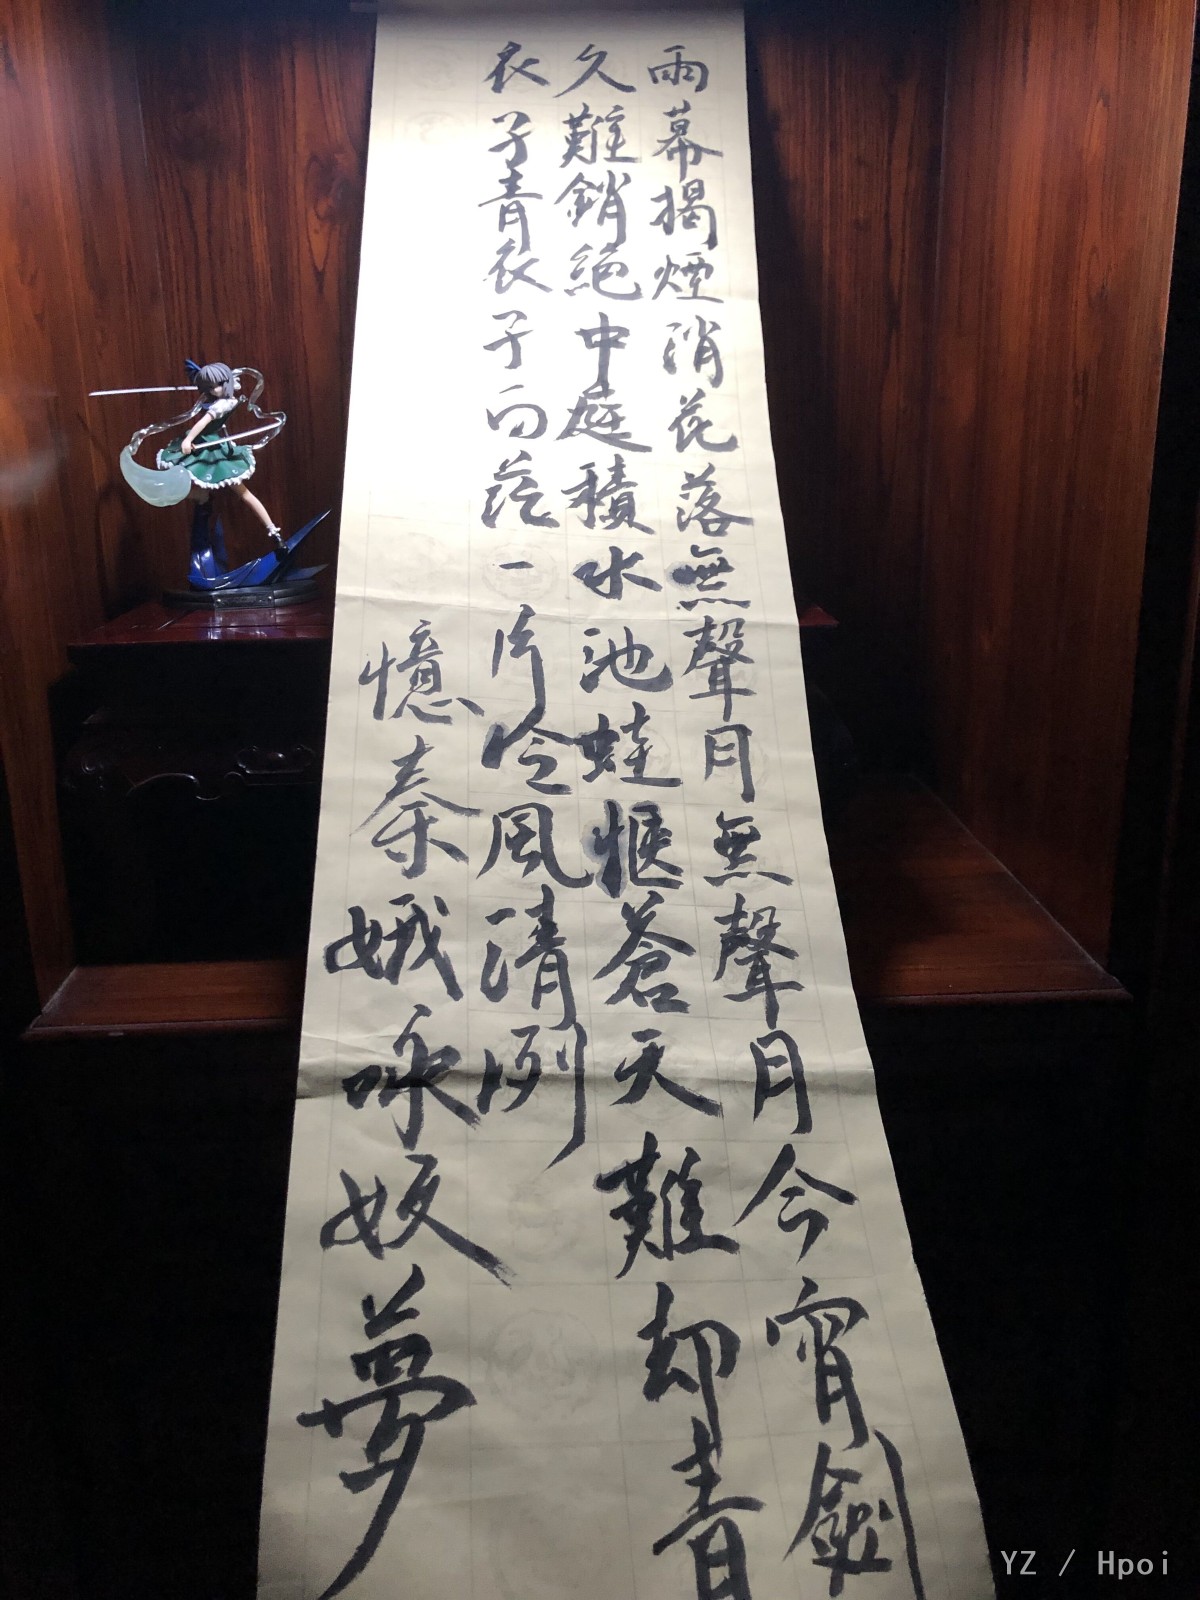 雨幕揭煙消花落無聲月無聲月今宵劍
久難銷絕中庭積水池蛙惬蒼天難却青
衣子青衣子白茫一片冷風清冽
憶秦娥咏妖夢
YZ / Hpoi